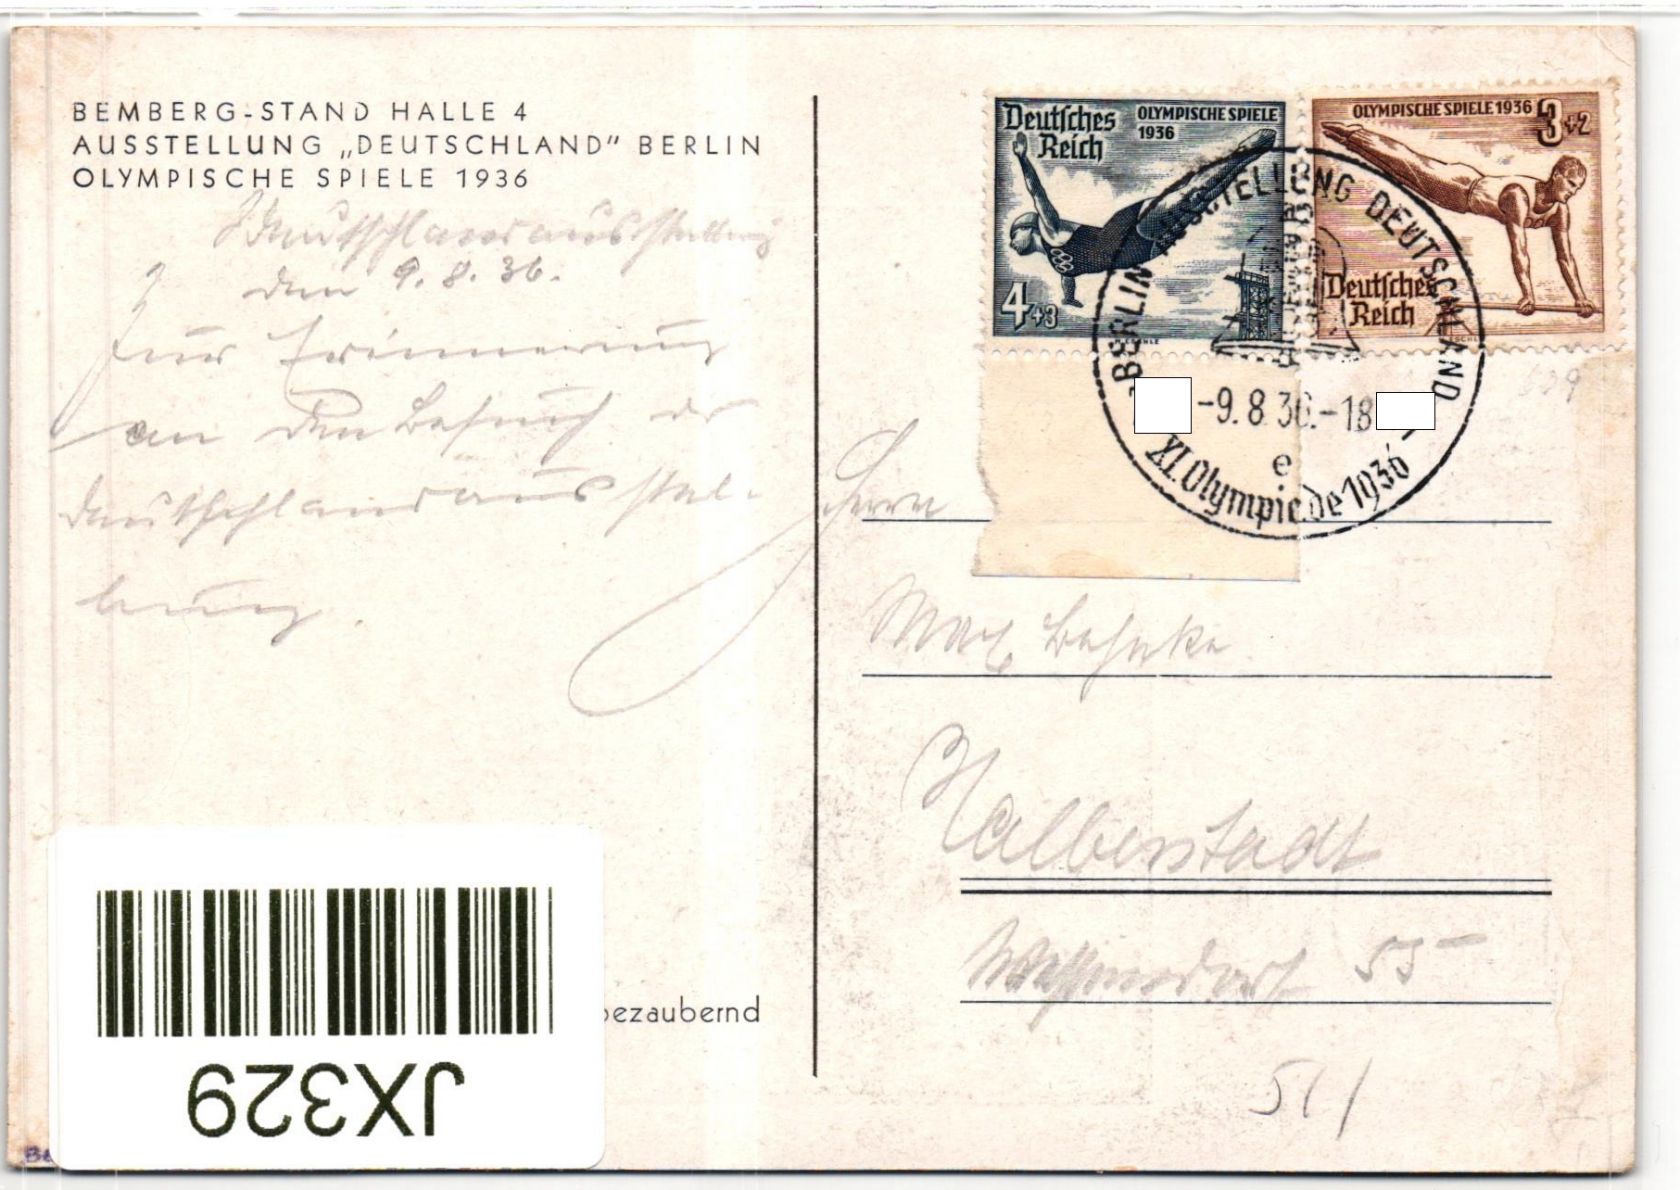 BEMBERG-STAND HALLE 4
AUSSTELLUNG „DEUTSCHLAND" BERLIN
OLYMPISCHE SPIELE 1936
Deutschlandausstellung
den 9.8.36.
Zur Erinnerung
an den Besuch der
Deutschlandausstel-
lung.
bezaubernd
JX329
Deutsches Reich
OLYMPISCHE SPIELE 1936
4+3
OLYMPISCHE SPIELE 1936
3+2
Deutsches Reich
BERLIN AUSSTELLUNG DEUTSCHLAND
-9.8.36.-18
e
XI.Olympiade 1936
Herrn
Max Behnke
Halberstadt
55